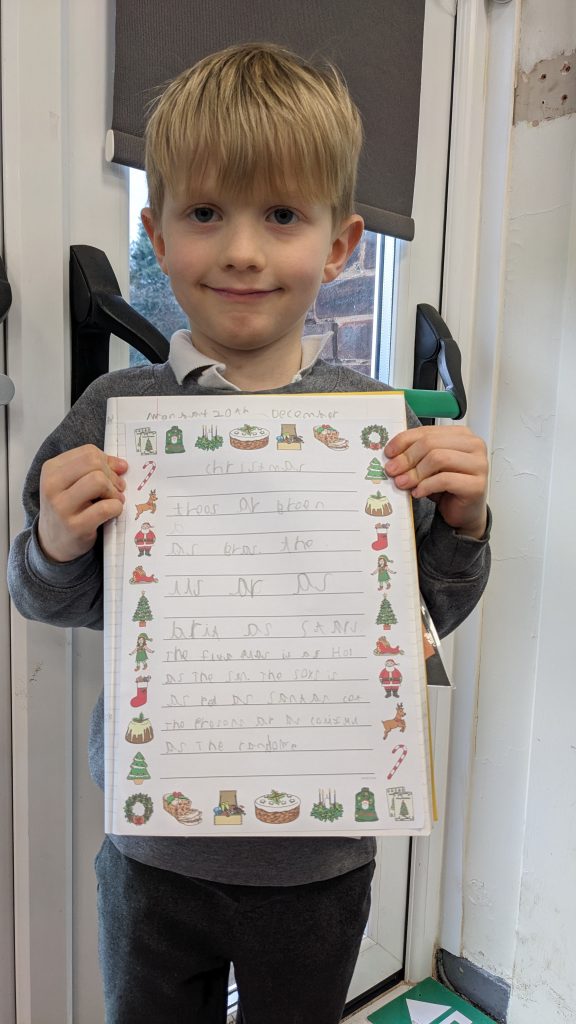 Monday 20th December
christmas
trees ar green
as gras the
as ar as
brit as stars
The fiyu ples is as Hot
as The sun The soxs is
as red as santas cot
The Presons ar as
as The